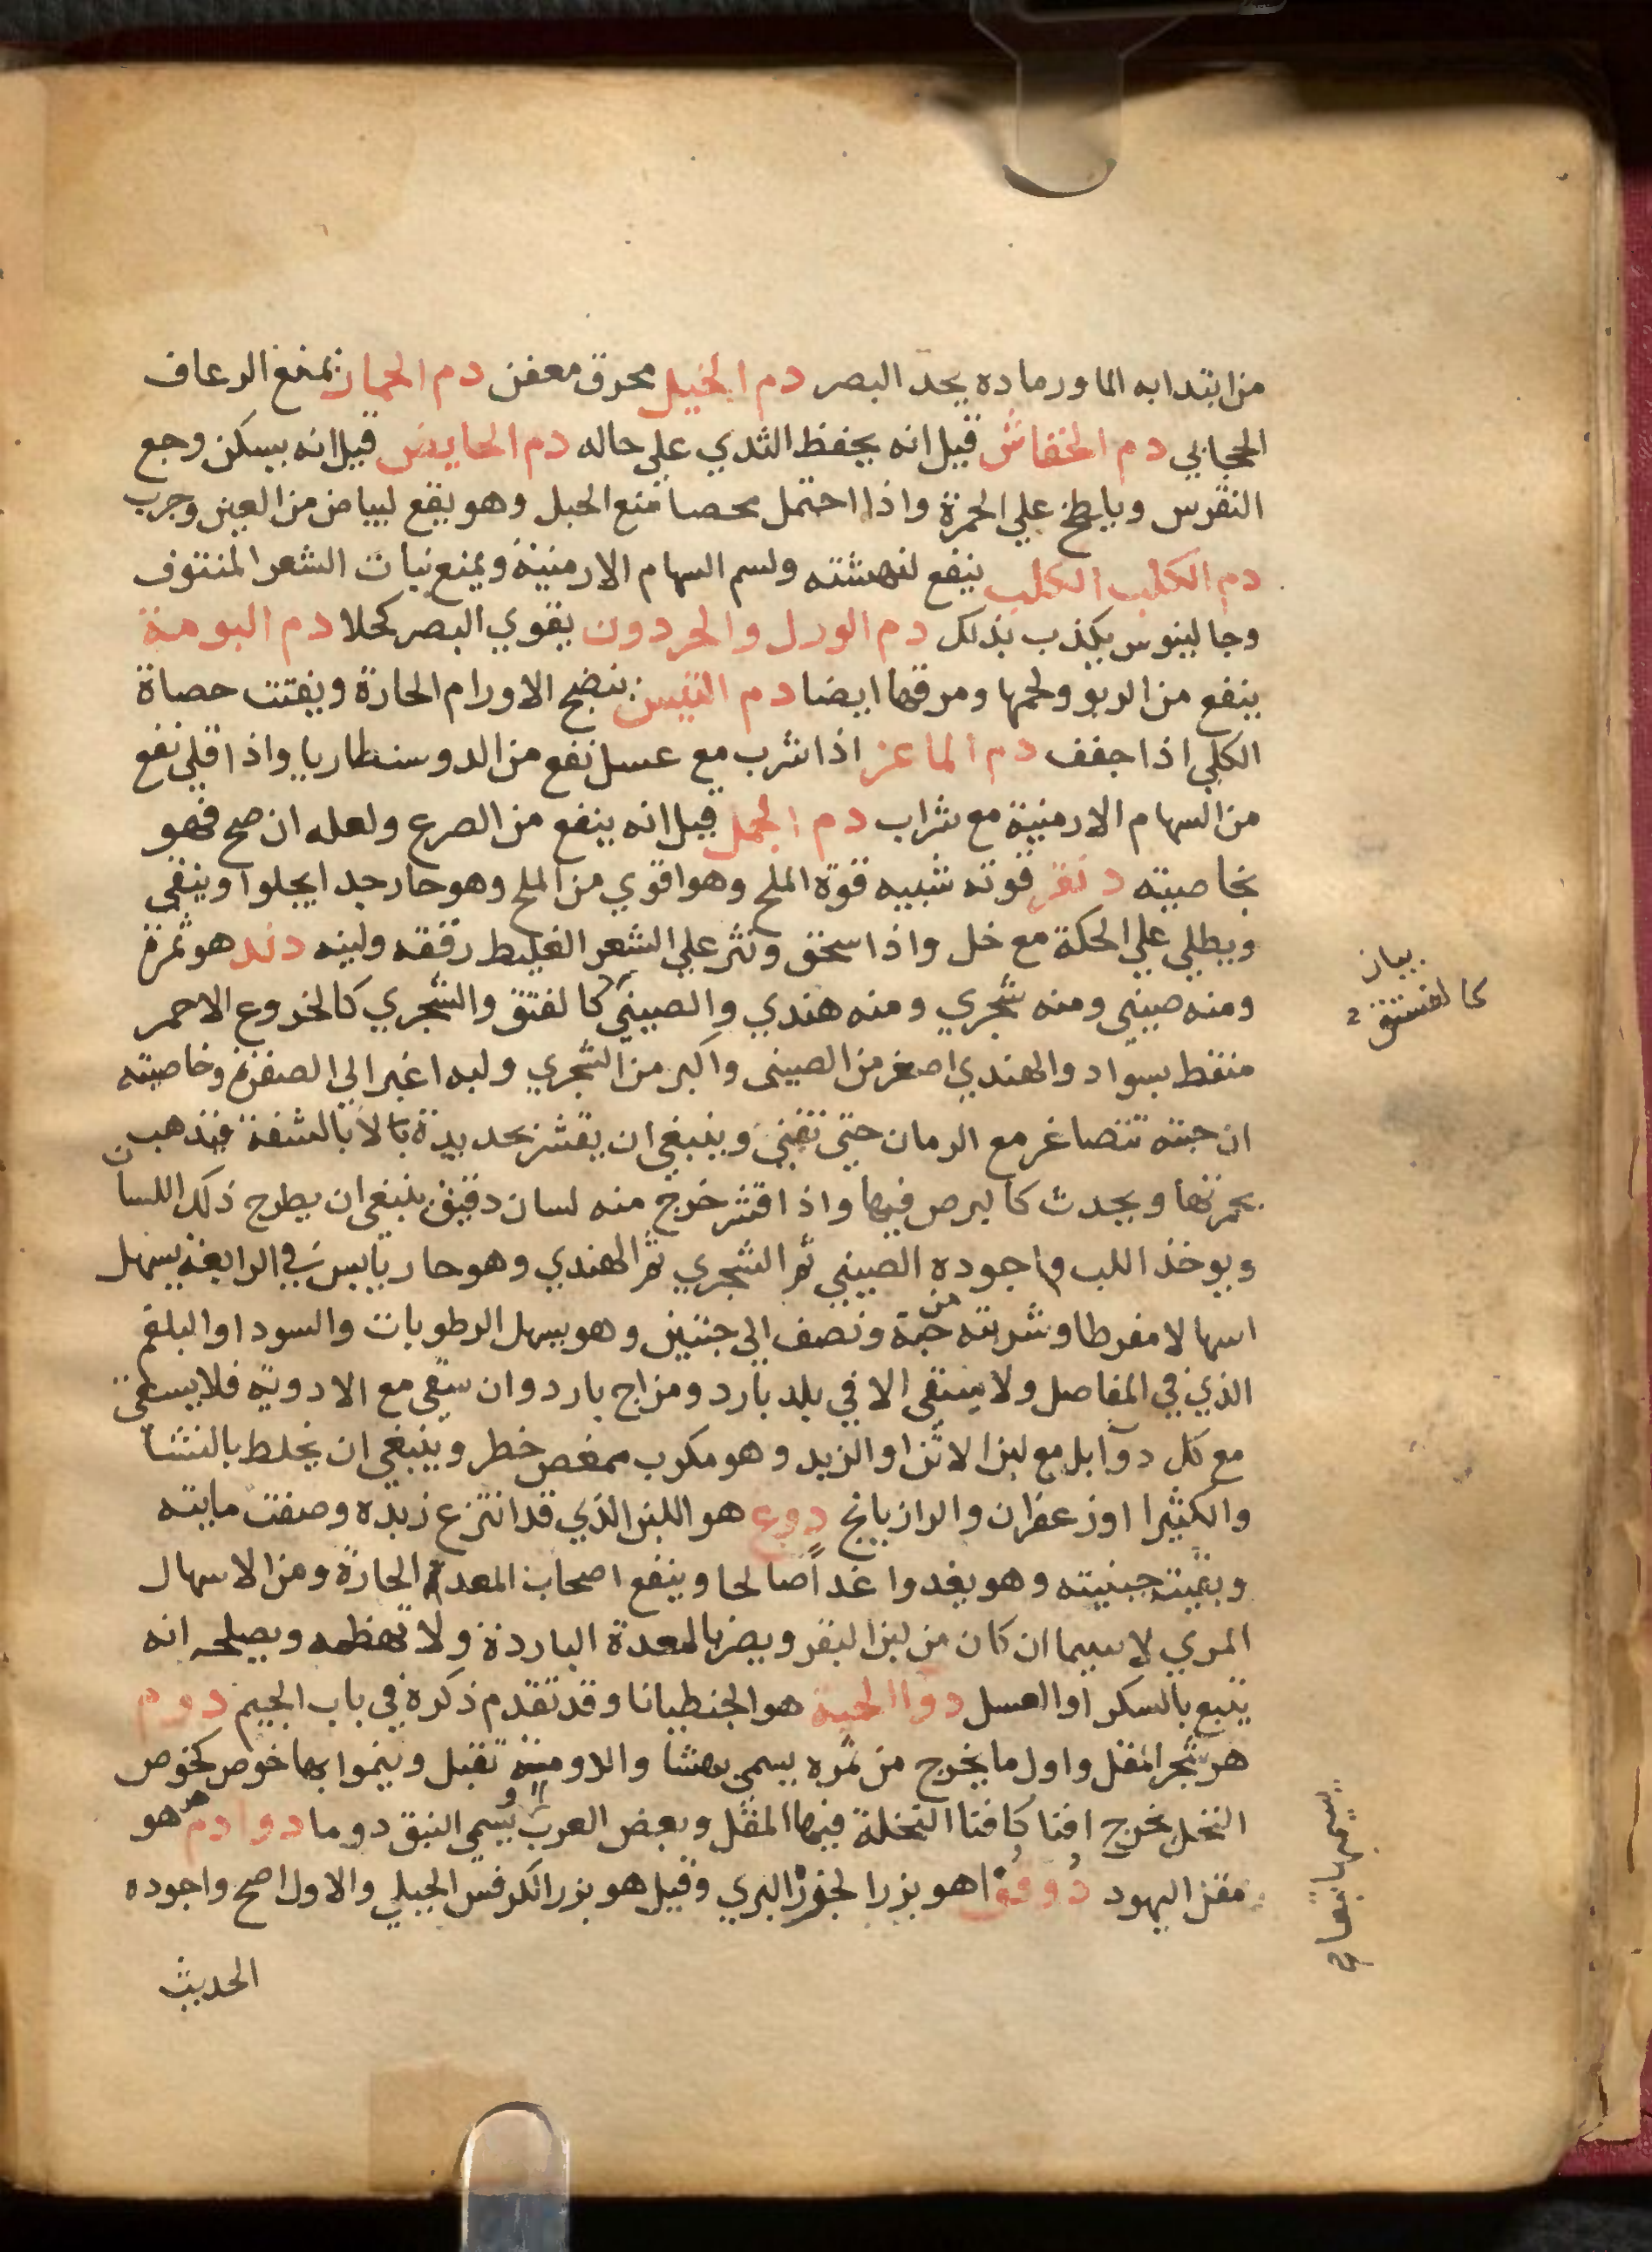 من ابتدا به الما ورماده يحد البصر دم الخيل محرق معفن دم الحمار يمنع الرعاف
الحجابي دم الخفاش قيل انه يحفظ الثدي علي حاله دم الحايض قيل انه يسكن وجع
النقرس ويلطخ علي الحمرة واذا احتمل محصا منع الحبل وهو يقع لبياض من العين وجرب
دم الكلب الكلب ينفع لنهشته ولسم السهام الارمنية ويمنع نبات الشعر المنتوف
وجالينوس يكذب بذلك دم الورل والحردون يقوي البصر كحلا دم البومة
ينفع من الربو ولحمها ومرقها ايضا دم التيس ينضج الاورام الحارة ويفتت حصاة
الكلي اذا جفف دم الماعز اذا شرب مع عسل نفع من الدوسنطاريا واذا قلي نفع
من السهام الارمنية مع شراب دم الجمل قيل انه ينفع من الصرع ولعله ان صح فهو
بخاصيته دنقر قوته شبيه قوة الملح وهو اقوي من الملح وهو حار جدا يجلوا وينقي
ويطلي علي الحكة مع خل واذا سحق ونثر علي الشعر الغليظ رققه ولينه دند هو ثمرة
ومنه صيني ومنه شجري ومنه هندي والصيني كالفتق والشجري كالخروع الاحمر
بيان
كالفستق
منقط بسواد والهندي اصغر من الصيني واكبر من الشجري ولبه اغبر الي الصفرة وخاصيته
ان حبته تتصاغر مع الزمان حتي تفني وينبغي ان يقشر بحديدة بالا بالشفة فيذهب
بحمرتها ويحدث كالبرص فيها واذا قشر خرج منه لسان دقيق ينبغي ان يطرح ذلك اللسان
ويوخذ اللب واجوده الصيني ثم الشجري ثم الهندي وهو حار يابس في الرابعة يسهل
اسهالا مفرطا وشربته من حبة ونصف الي حبتين وهو يسهل الرطوبات والسودا والبلغم
الذي في المفاصل ولا يستقى الا في بلد بارد ومزاج بارد وان سقي مع الادوية فلا يسقي
مع كل دوآ بل مع لبن الاتن او الزبد وهو مكرب ممغص خطر وينبغي ان يخلط بالنشا
والكثيرا او زعفران والرازيانج دوع هو اللبن الذي قد انتزع زبده وصفت مايته
وبقيت جبنيته وهو يغدوا غداً صالحا وينفع اصحاب المعدة الحارة ومن الاسهال
المري لا سيما ان كان من لبن البقر ويضر بالمعدة الباردة ولا تهظمه ويصلحه انه
يتبع بالسكر او العسل دوآ الحية هو الجنطيانا وقد تقدم ذكره في باب الجيم دوم
هو شجر المقل واول ما يخرج من ثمره يسمي بهشا والدومة تقبل وينموا بها خوص كخوص
النخل يخرج افنا كافنا النخلة فيها المقل وبعض العرب يسمي النبق دوما دوادم هو
مقز اليهود دوقوا هو بزر الجزر البري وقيل هو بزر الكرفس الجبلي والاول اصح واجوده
الحديث